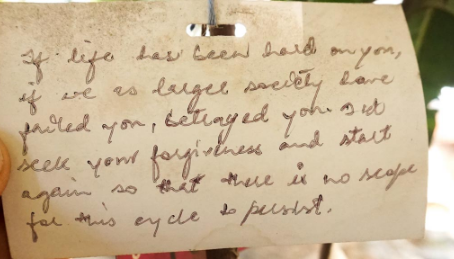 If life has been hard on you,
if we as larger society have
failed you, betrayed you. I
seek your forgiveness and start
again so that there is no scope
for this cycle to persist.